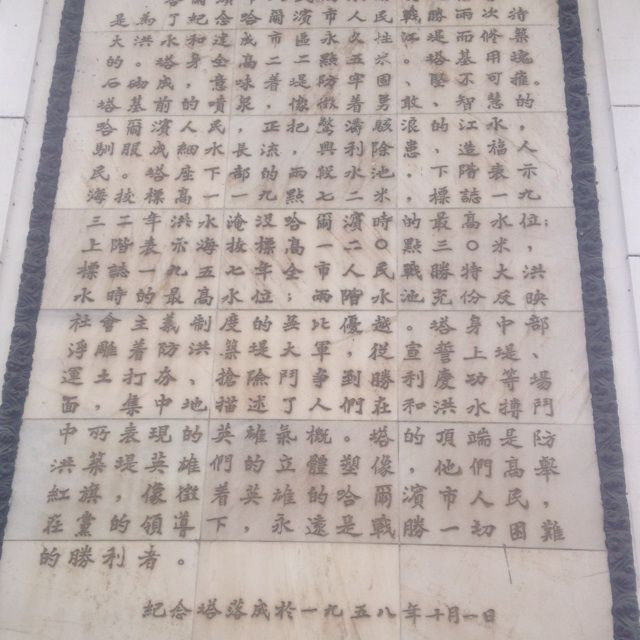 是為了紀念哈爾濱市人民戰勝兩次特
大的洪水和建成市區永久性江堤而修築
的。塔身全高二二點五米。塔基用
石砌成,意味着堤防牢固、堅不可摧,
塔基前的噴泉,像徵着勇敢、智慧的
哈爾濱人民,正把驚濤駭浪的江水,
馴服成細水長流的興利除患,造福人
民。塔座下部的兩級水池,下階表示
海拔標高一一九點七二米,標誌一九
三二年洪水淹沒哈爾濱時的最高水位;
上階表示海拔標高一二〇點三〇米,
標誌一九五七年全市人民戰勝特大洪
水時的最高水位;兩階水池充份反映
社會主義制度的無比優越。塔身中部
浮雕着防洪築堤大軍,從宣誓上堤、
運土打夯、搶險鬥爭到勝利慶功等場
面,集中地描述了人們在和洪水搏鬥
中所表現的英雄氣概。塔的頂端是防
洪築堤英雄們的立體塑像,他們高舉
紅旗,像徵着英雄的哈爾濱市人民,
在黨的領導下,永遠是戰勝一切困難
的勝利者。
紀念塔落成於一九五八年十月一日